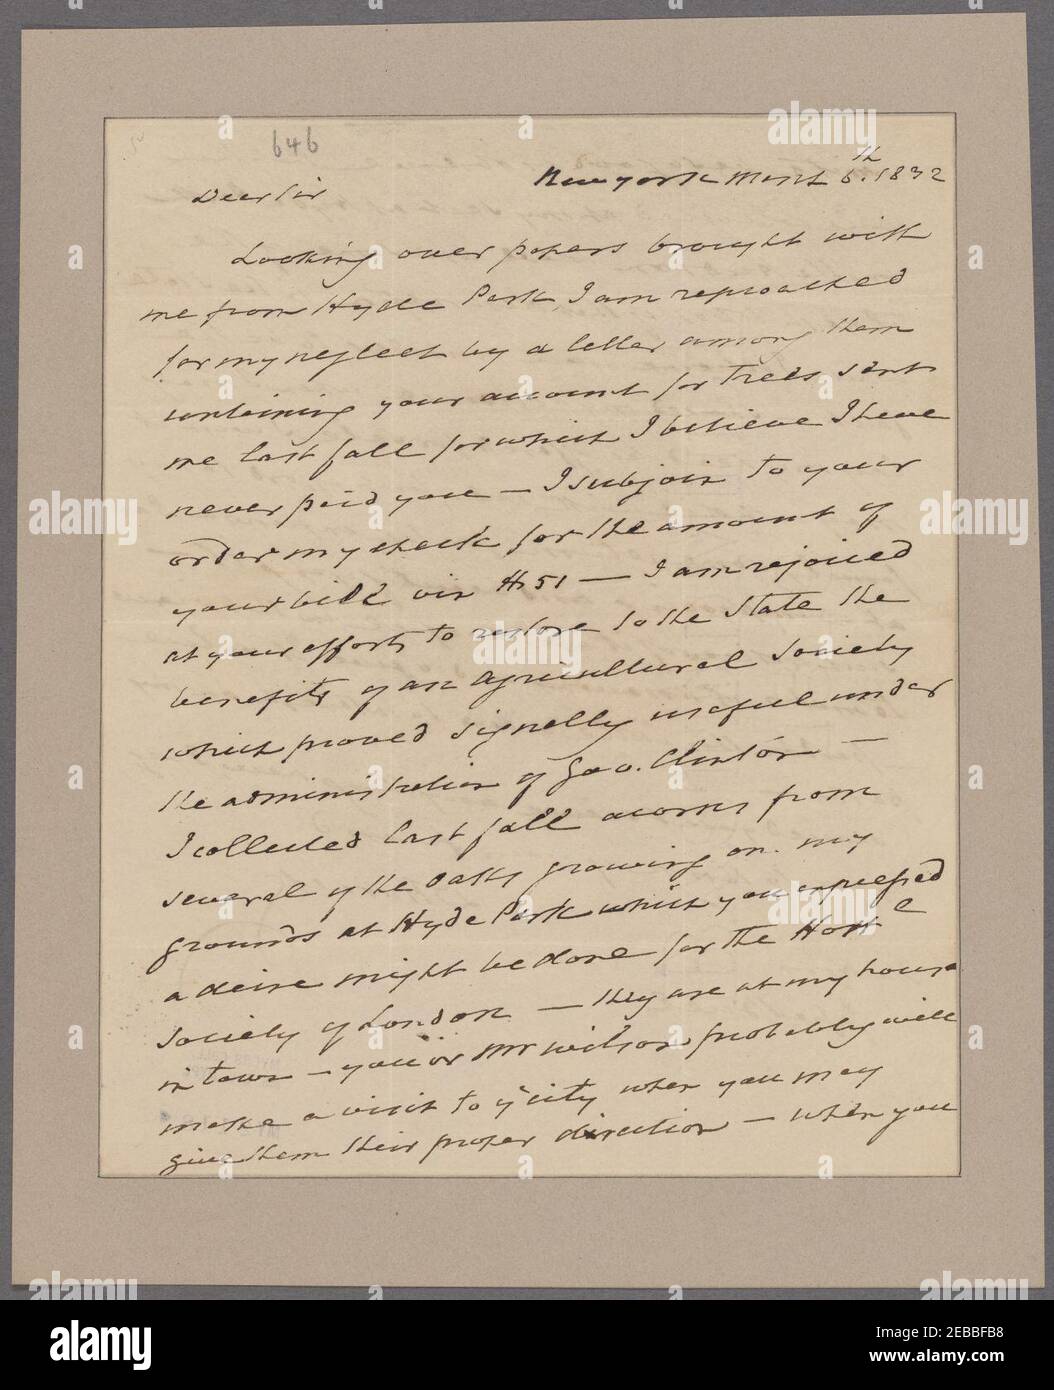 646
New york March 6.th 1832
Dear Sir
Looking over papers brought with
me from Hyde Park, I am reproached
for my neglect by a letter among them
containing your account for trees sent
me last fall for which I believe I have
never paid you — I subjoin to your
order my check for the amount of
your bill viz $51 — I am rejoiced
at your efforts to restore to the State the
benefits of an Agricultural Society
which proved signally useful under
the administration of Gov. Clinton —
I collected last fall acorns from
several of the oaks growing on my
grounds at Hyde Park which you expressed
a desire might be done for the Hortle
Society of London — they are at my house
in town — you or Mr Wilson probably will
make a visit to ye city when you may
give them their proper direction — when you
alamy
Image ID: 2EBBFB8
www.alamy.com